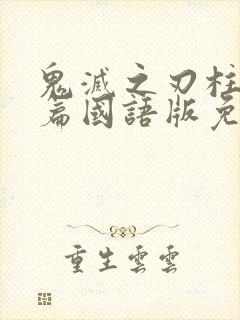 鬼滅之刃柱
篇國語版免
重生雲雲